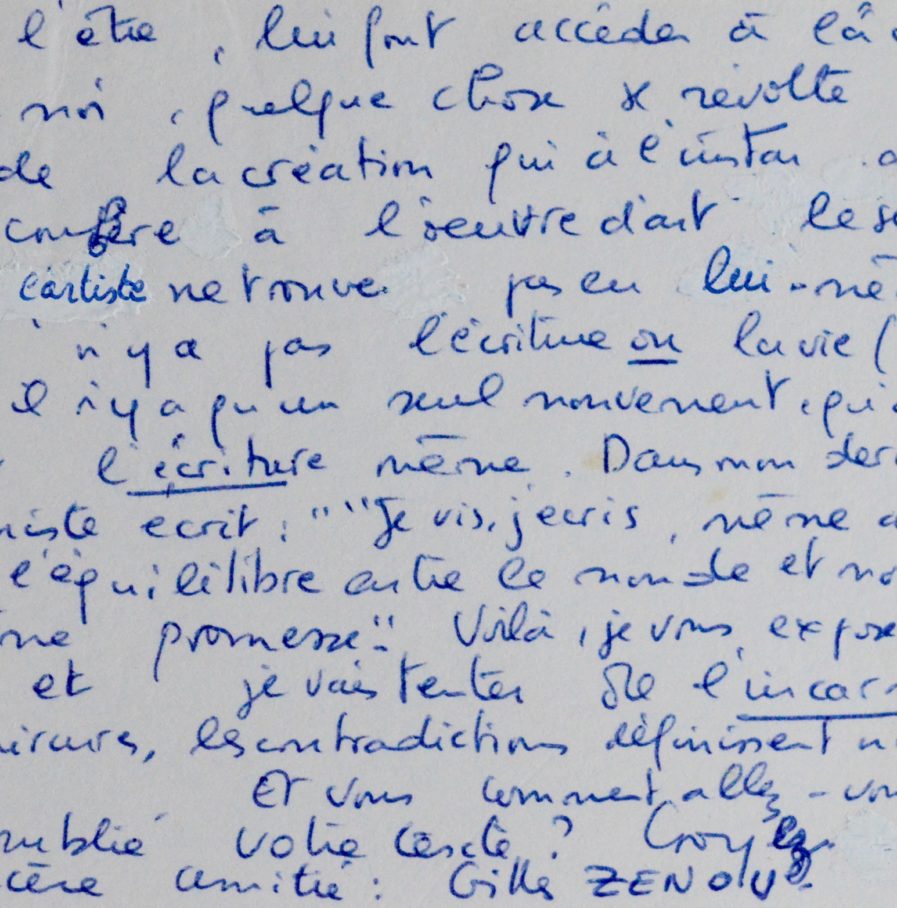 l'être, lui font accéder à l'â
moi, quelque chose se révolte
de la création qui à l'instar
confère à l'oeuvre d'art le s
l'artiste ne trouve pas en lui-mê
n'y a pas l'écriture ou la vie (
il n'y a qu'un seul mouvement, qui
l'écriture même. Dans mon der
niste écrit : "“Je vis, j'écris, même
l'équilibre entre le monde et no
me promesse". Voilà, je vous expose
et je vais tenter de l'incar
, les contradictions définissent
Et vous comment allez-vou
oublié votre ? Croyez
cère amitié : Gilles ZENOU.